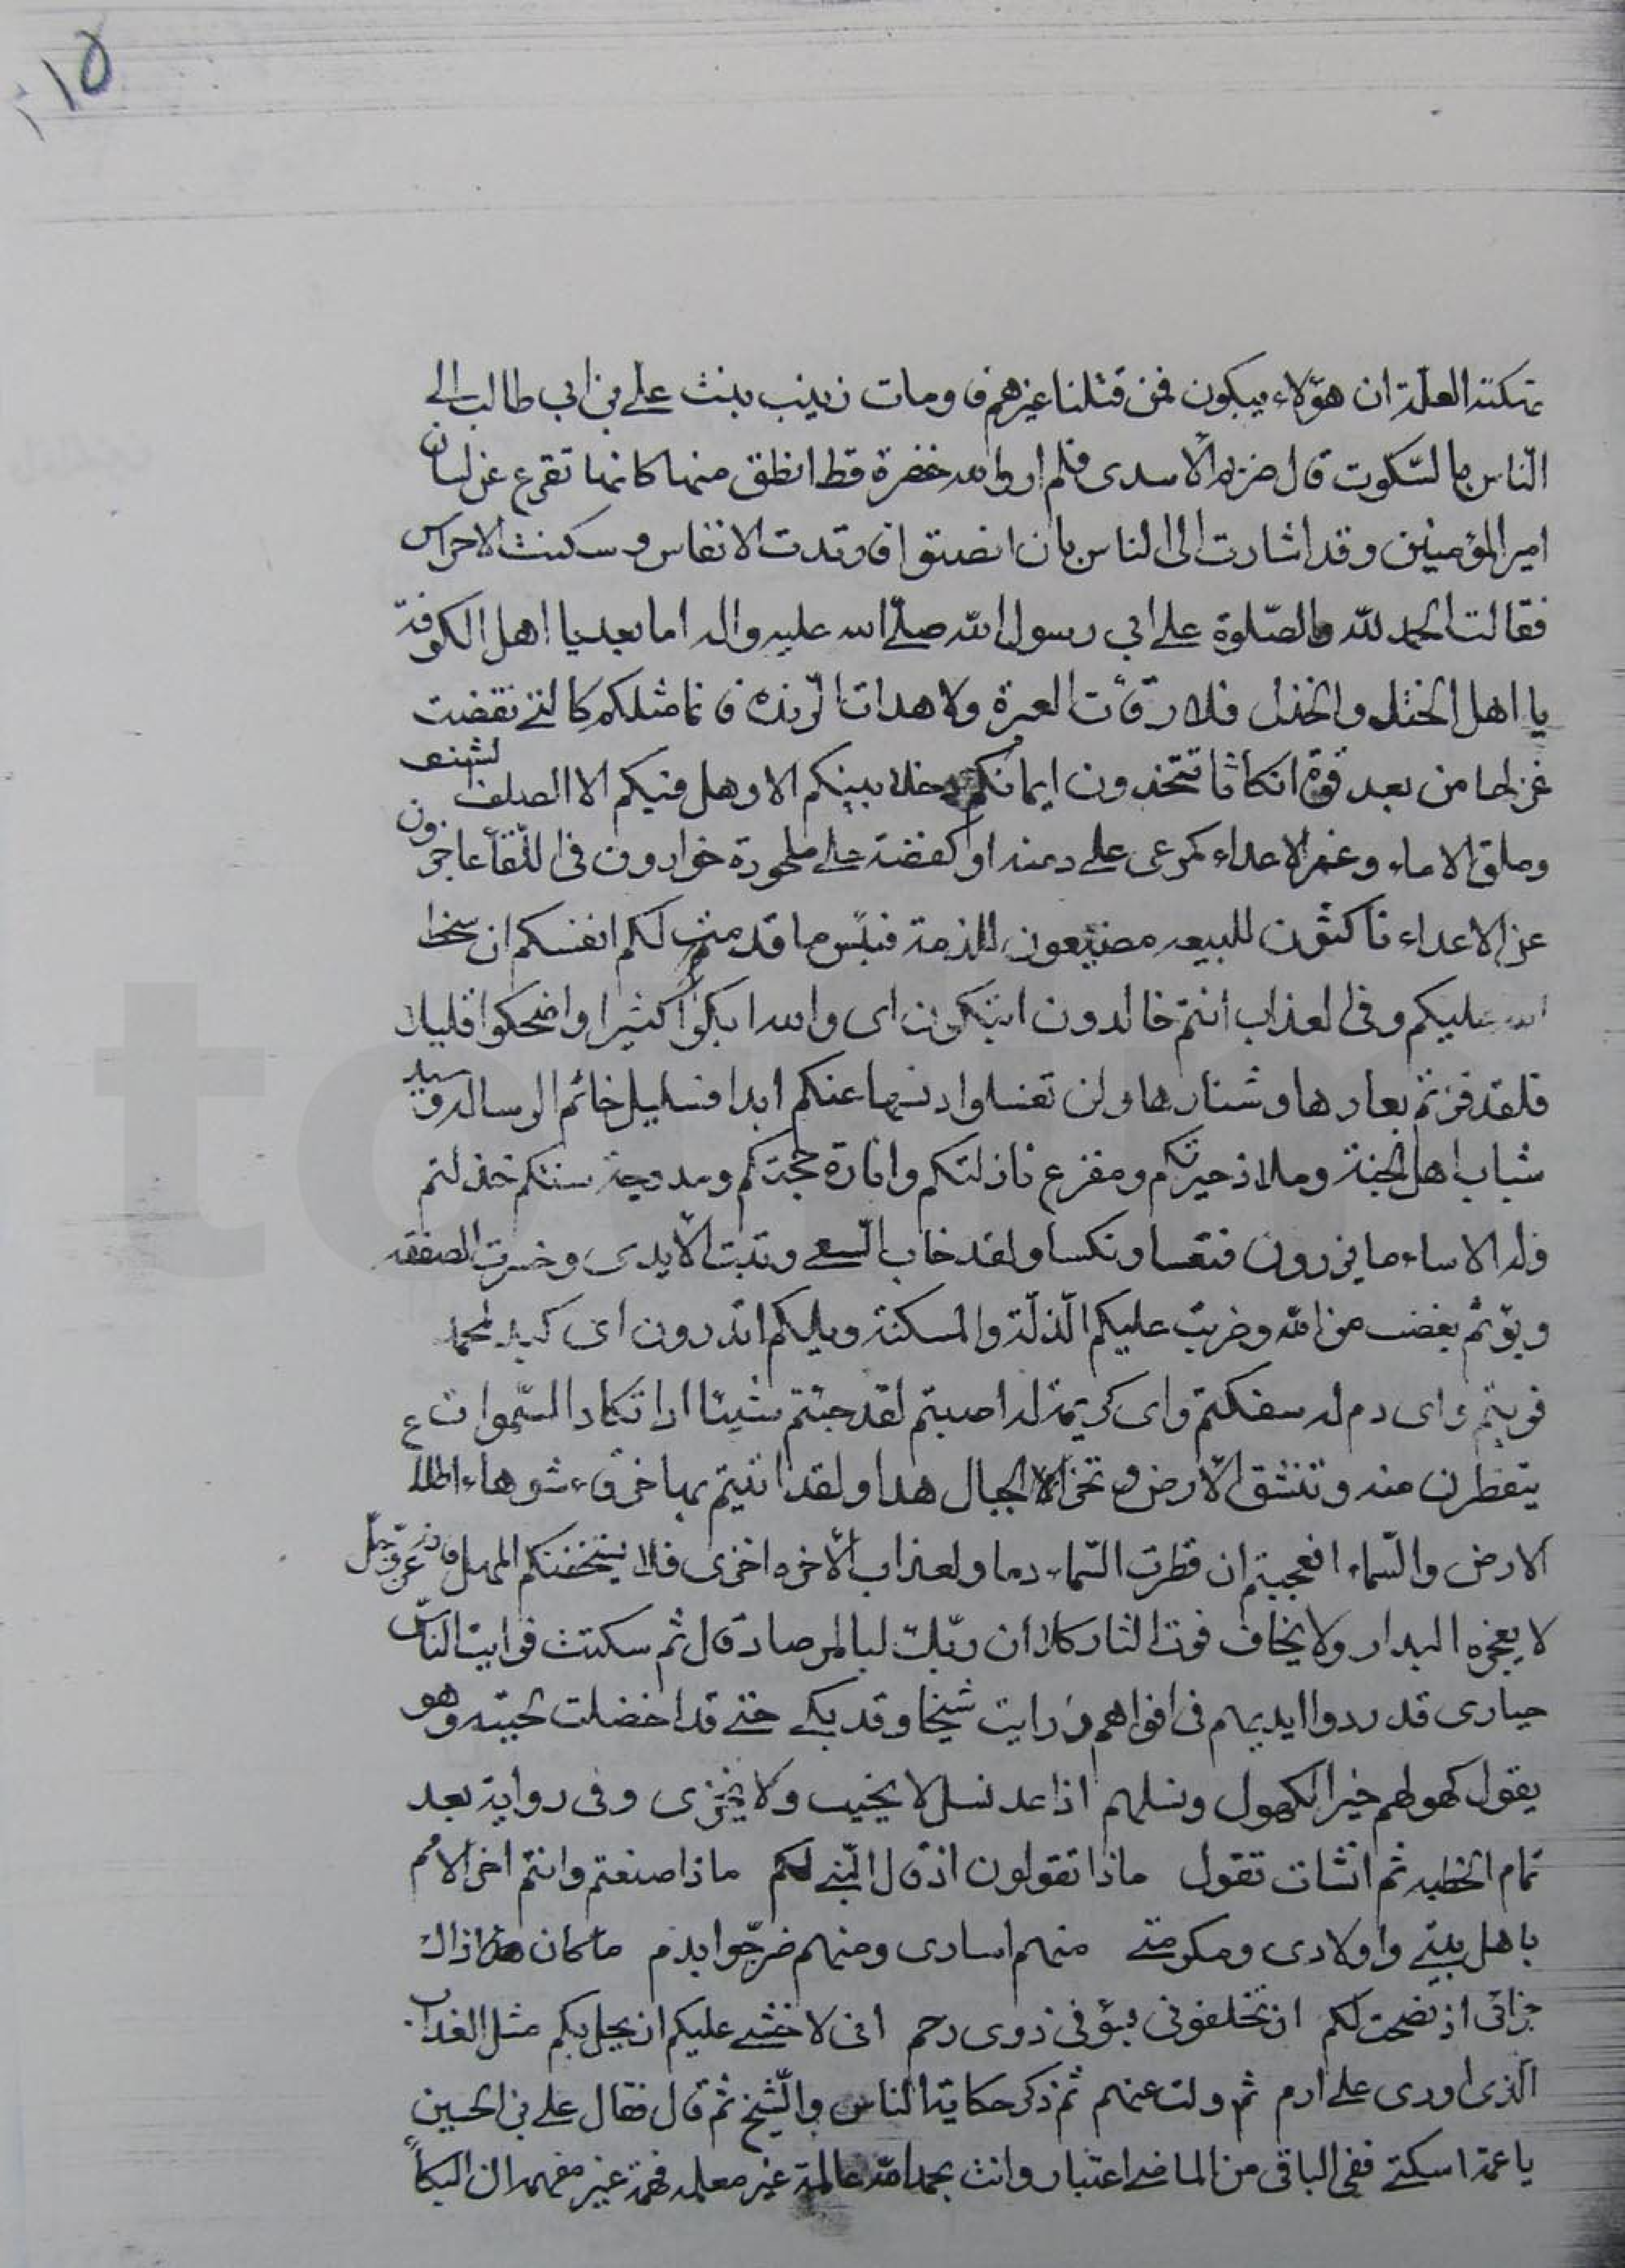 ١١٥
نهكته العلة ان هؤلاء يبكون فمن قتلنا غيرهم ق ومات زينب بنت علي بن ابي طالب الى
الناس بالسكوت قال حزيم الاسدى فلم ار والله خفرة قط انطق منها كانها تفرع عن لسان
امير المؤمنين وقد اشارت الى الناس بان انصتوا فارتدت الانفاس وسكنت الاجراس
فقالت الحمد لله والصلوة على ابي رسول الله صلى الله عليه واله اما بعد يا اهل الكوفة
يا اهل الختل والخذل فلا رقأت العبرة ولا هدات الزفرة فانما مثلكم كالتي نقضت
غزلها من بعد قوة انكاثا تتخذون ايمانكم دخلا بينكم الا وهل فيكم الا الصلف الشنف
وملق الاماء وغمز الاعداء كمرعى على دمنه او كفضة على ملحودة خوارون في اللقاء عاجزون
عن الاعداء ناكثون للبيعه مضيعون للذمة فبئس ما قدمت لكم انفسكم ان سخط
الله عليكم وفي العذاب انتم خالدون اتبكون اى والله ابكوا كثيرا واضحكوا قليلا
فلقد فزتم بعارها وشنارها ولن تغسلوا دنسها عنكم ابدا فسليل خاتم الرسالة وسيد
شباب اهل الجنة وملاذ خيرتكم ومفزع نازلتكم وامارة محجتكم ومدرجة سنتكم خذلتم
وله الاساء ما يزرون فتعسا ونكسا ولقد خاب السعي وتبت الايدى وخسرت الصفقه
وبؤتم بغضب من الله وضربت عليكم الذلة والمسكنة ويلكم اتدرون اى كبد لمحمد
فريتم واى دم له سفكتم واى كريمة له اصبتم لقد جئتم شيئا ادا تكاد السموات ع
يتفطرن منه وتنشق الارض وتخر الجبال هدا ولقد اتيتم بها خرقاء شوهاء طلاع
الارض والسماء افعجبتم ان قطرت السماء دما ولعذاب الاخره اخزى فلا يستخفنكم المهل فانه عز وجل
لا يعجزه البدار ولا يخاف فوت الثار كلا ان ربك لبالمرصاد قال ثم سكتت فرايت الناس
حيارى قد ردوا ايديهم في افواههم ورايت شيخا وقد بكى حتى قد اخضلت لحيته وهو
يقول كهولهم خير الكهول ونسلهم اذا عد نسل لا يخيب ولا يخزى وفي رواية بعد
تمام الخطبه ثم انشات تقول ماذا تقولون اذ قال النبي لكم ماذا صنعتم وانتم اخر الامم
باهل بيتي واولادى ومكرمتي منهم اسارى ومنهم ضرجوا بدم ما كان هذا ذاك
جزائى اذ نصحت لكم ان تخلفونى بسوء في ذوى رحم انى لاخشى عليكم ان يحل بكم مثل العذاب
الذى اودى على ارم ثم ولت عنهم ثم ذكر حكاية الناس والشيخ ثم قال فقال علي بن الحسين
يا عمة اسكتى ففي الباقى من الماضى اعتبار وانت بحمد الله عالمة غير معلمه فهمة غير مفهمه ان البكاء